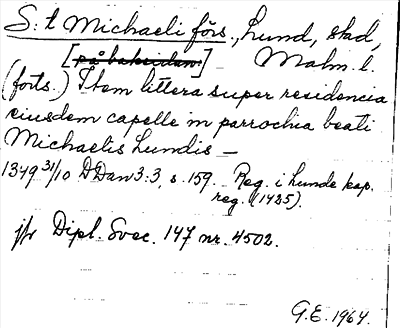 S:t Michaeli förs., Lund, stad,
[på baksidan:] Malm. l.
(forts.) Item littera super residencia
eiusdem capelle in parrochia beati
Michaelis Lundis —
1349 31/10 DDan 3:3, s. 159. Reg. i Lunde kap.
reg. (1425).
jfr Dipl. Svec. 147 nr. 4502.
G.E. 1964.